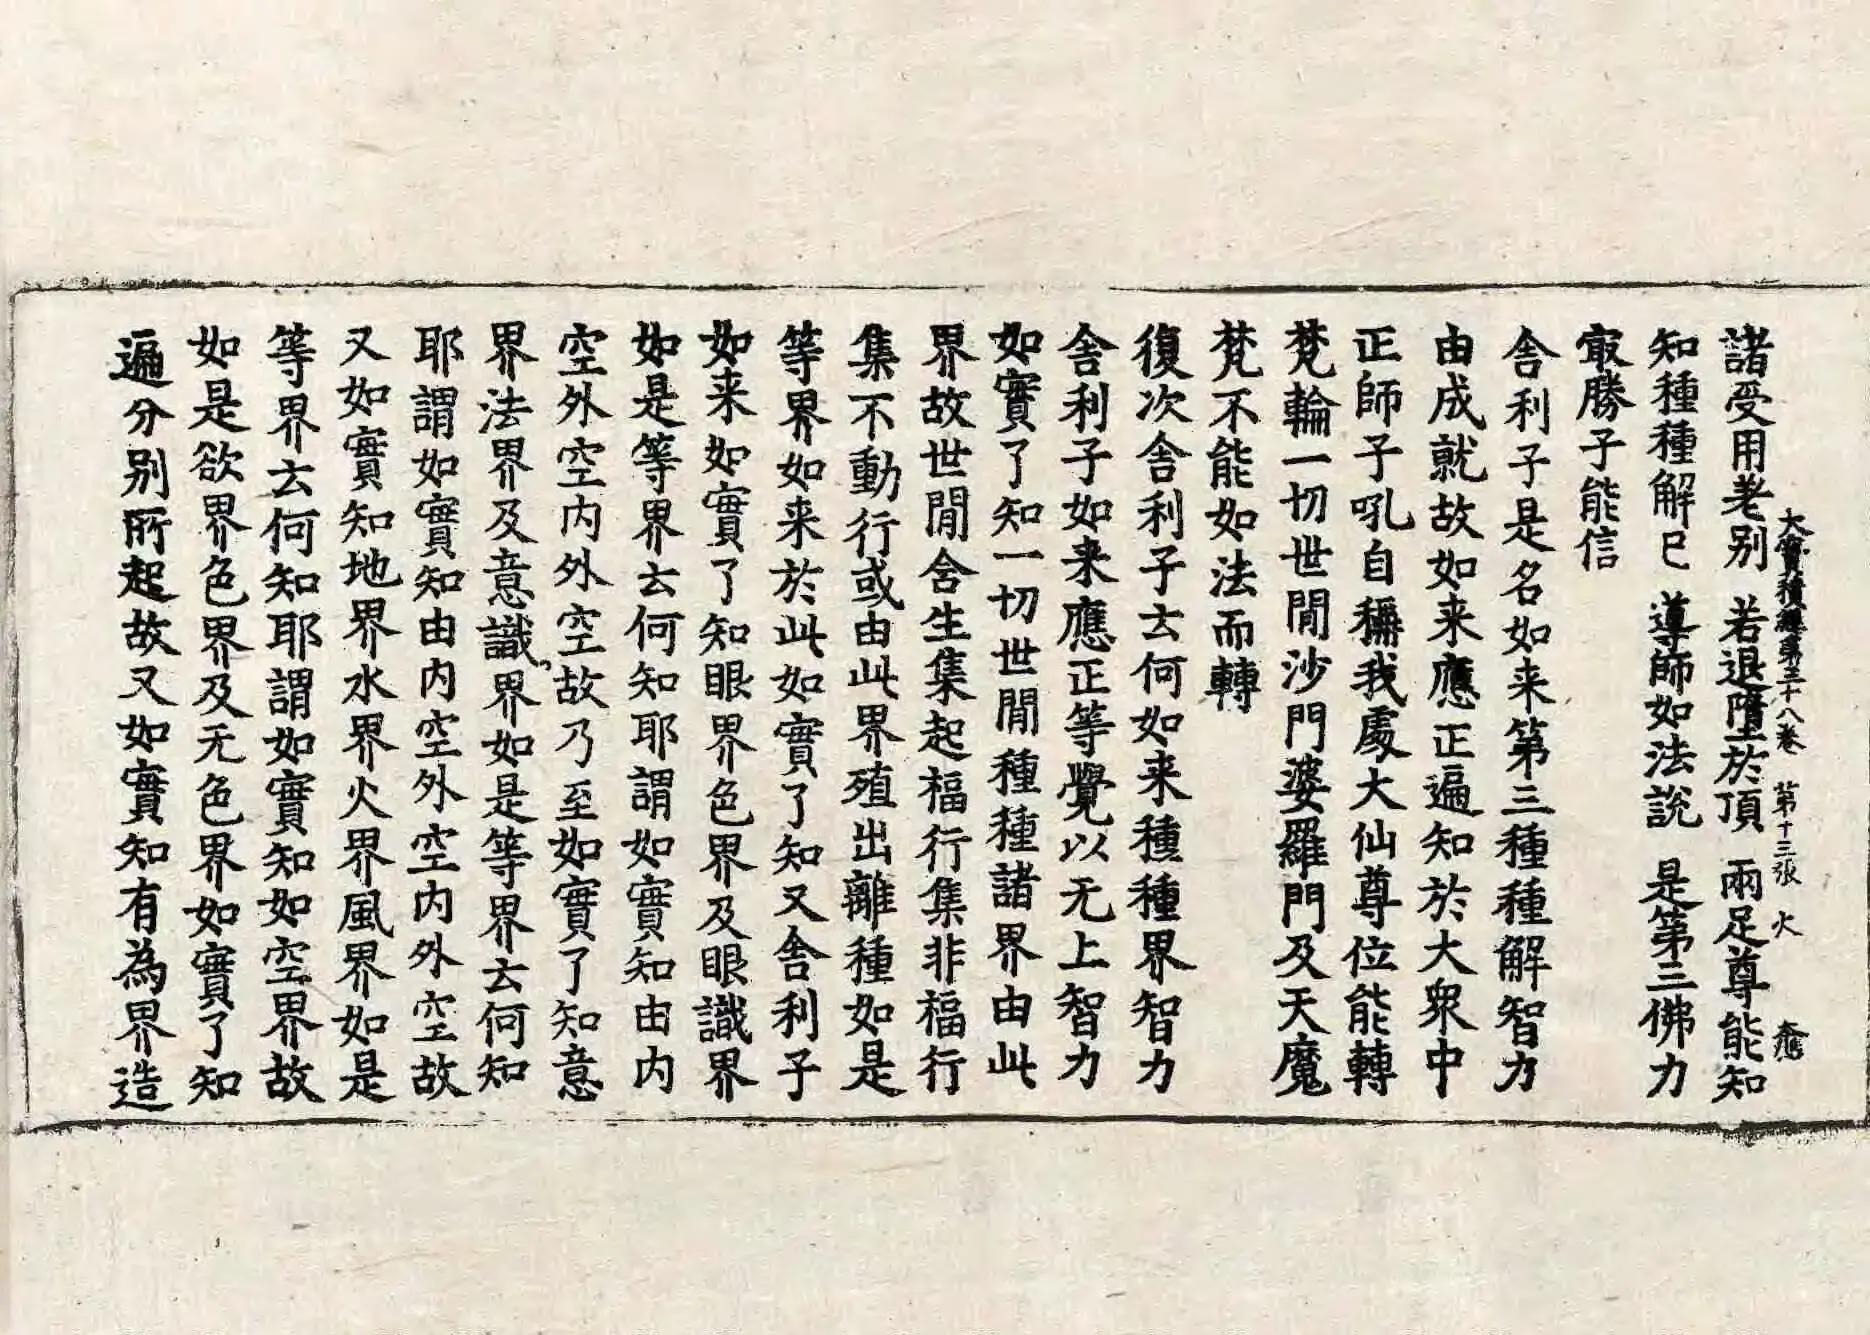 大寶積經第三十八卷 第十三張 火
諸受用差別 若退墮於頂 兩足尊能知
知種種解已 導師如法說 是第三佛力
㝡勝子能信
舍利子是名如来第三種種解智力
由成就故如来應正遍知於大衆中
正師子吼自稱我處大仙尊位能轉
梵輪一切世間沙門婆羅門及天魔
梵不能如法而轉
復次舍利子云何如来種種界智力
舍利子如来應正等覺以无上智力
如實了知一切世間種種諸界由此
界故世間舍生集起福行集非福行
集不動行或由此界殖出離種如是
等界如来於此如實了知又舍利子
如来如實了知眼界色界及眼識界
如是等界云何知耶謂如實知由内
空外空内外空故乃至如實了知意
界法界及意識界如是等界云何知
耶謂如實知由内空外空内外空故
又如實知地界水界火界風界如是
等界云何知耶謂如實知如空界故
如是欲界色界及无色界如實了知
遍分別所起故又如實知有為界造